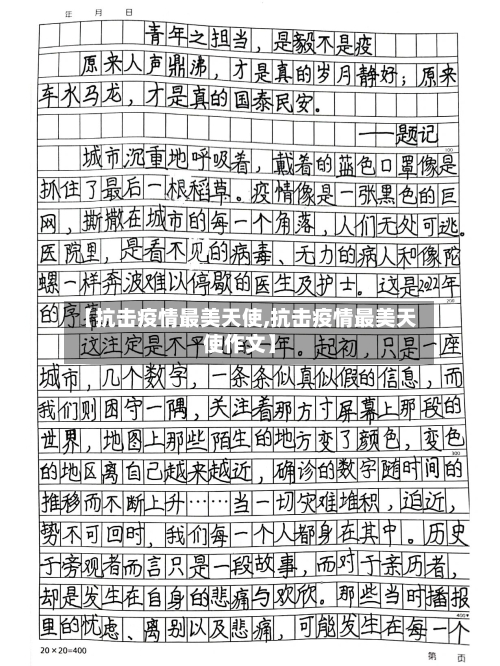 年 月 日
青年之担当，是毅不是疫
原来人声鼎沸，才是真的岁月静好；原来
车水马龙，才是真的国泰民安。
——题记
100
城市沉重地呼吸着，戴着的蓝色口罩像是
抓住了最后一根稻草。疫情像是一张黑色的巨
网，撕撒在城市的每一个角落，人们无处可逃。
医院里，是看不见的病毒、无力的病人和像陀
螺一样奔波难以停歇的医生及护士。这是2022年
200
的序幕
【抗击疫情最美天使,抗击疫情最美天
使作文】
这注定是不平 年。起初，只是一座
城市，几个数字，一条条似真似假的信息，而
我们则困守一隅，关注着那方寸屏幕上那段的
世界，地图上那些陌生的地方变了颜色，变色
300
的地区离自己越来越近，确诊的数字随时间的
推移而不断上升……当一切灾难堆积，迫近，
势不可回时，我们每一个人都身在其中。历史
于旁观者而言只是一段故事，而对于亲历者，
却是发生在自身的悲痛与欢欣。那些当时播报
400
里的忧虑、离别以及悲痛，可能发生在每一个
20×20=400
第 页